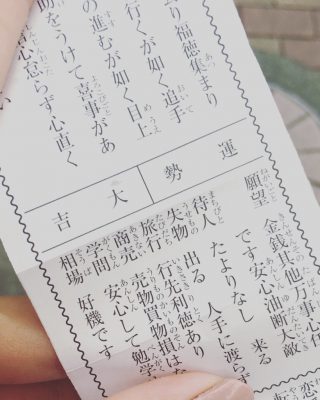 り福徳集まり
行くが如く追手
の進むが如く目上
助をうけて喜事があ
心忘らず心直く
運勢
大吉
願望 金銭其他万事心任
です安心油断大敵
待人 たよりなし 来る
失物 出る 人手に渡らず
旅行 行先利徳あり
商売 売物買物損はな
学問 安心して勉学
相場 好機です
恋
転